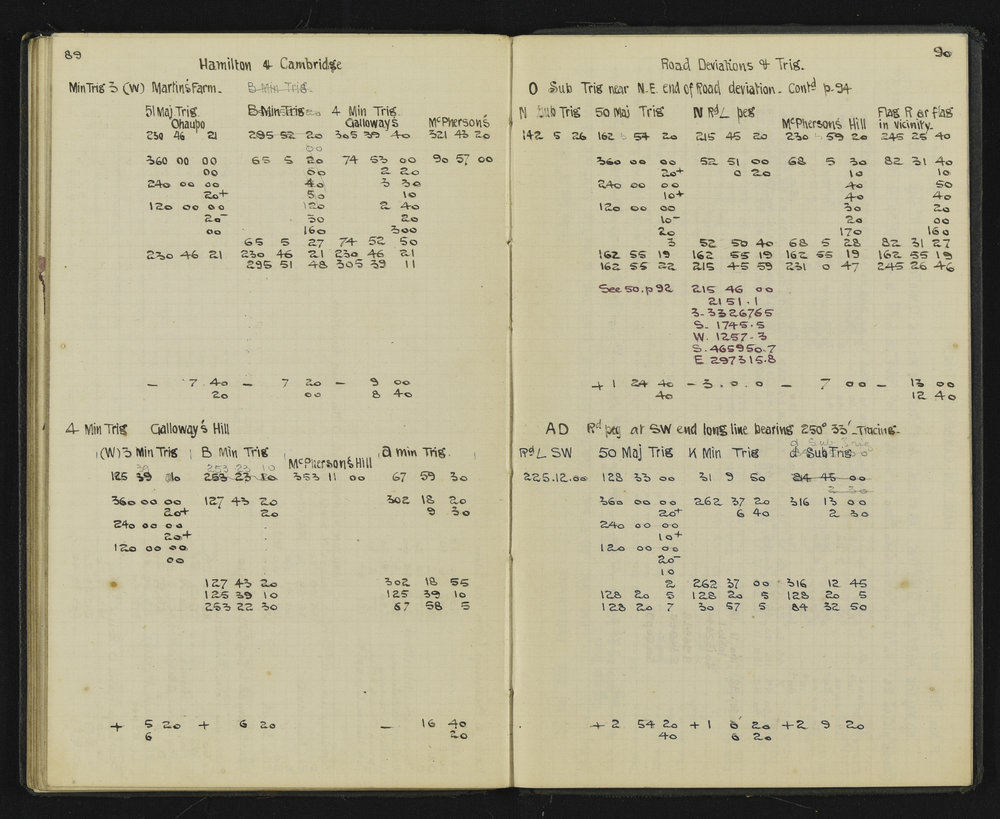 89
Hamilton & Cambridge
Min Trig 3 (W) Martin's Farm. B Min Trig.
51 Maj. Trig. B Min Trig 4 Min Trig
Ohaupo Galloway's McPherson's
230 46 21 295 52 20 305 39 40 321 43 20
00
360 00 00 65 5 20 74 53 00 90 57 00
00 60 2 20
240 00 00 40 3 30
20+ 50 10
120 00 00 120 2 40
20- 30 20
00 160 300
65 5 27 74 52 50
230 46 21 230 46 21 230 46 21
295 51 48 305 39 11
- 7 40 - 7 20 - 9 00
20 00 8 40
4 Min Trig Galloway's Hill
(W) 3 Min Trig B Min Trig McPherson's Hill a min Trig.
253 23 10
125 39 10 253 23 10 353 11 00 67 59 30
360 00 00 127 43 20 302 18 20
20+ 20 9 30
240 00 00
20+
120 00 00
00
127 43 20 302 18 55
125 39 10 125 39 10
253 22 30 67 58 5
+ 5 20 + 6 20 - 16 40
6 20
90
Road Deviations & Trig.
O Sub Trig near N.E. end of Road deviation. Contd p. 94
N Sub Trig 50 Maj Trig N Rd L peg McPherson's Hill Flag R or flag in vicinity.
142 5 26 162 54 20 215 45 20 230 59 20 245 25 40
360 00 00 52 51 00 68 5 30 82 31 40
20+ 0 20 10 10
240 00 00 40 50
10+ 40 40
120 00 00 30 20
10- 20 00
20 170 160
3 52 50 40 68 5 28 82 31 27
162 55 19 162 55 19 162 55 19 162 55 19
162 55 22 215 45 59 231 0 47 245 26 46
See 50. p 92 215 46 00
2151.1
3.3326765
S. 1745.5
W. 1257.3
S. 465950.7
E 297315.8
+ 1 24 40 - 3 . 0 . 0 - 7 00 - 13 00
40 12 40
AD Rd peg at SW end long line bearing 250° 33' Tracing.
d Sub Trig
Rd L SW 50 Maj Trig K Min Trig d Sub Trig
225.12.00 128 33 00 31 9 50 84 45 00
2 30
360 00 00 262 37 20 316 13 00
20+ 6 40 2 30
240 00 00
10+
120 00 00
20-
10
2 262 37 00 316 12 45
128 20 5 128 20 5 128 20 5
128 20 7 30 57 5 84 32 50
+ 2 54 20 + 1 6 20 + 2 9 20
40 6 20